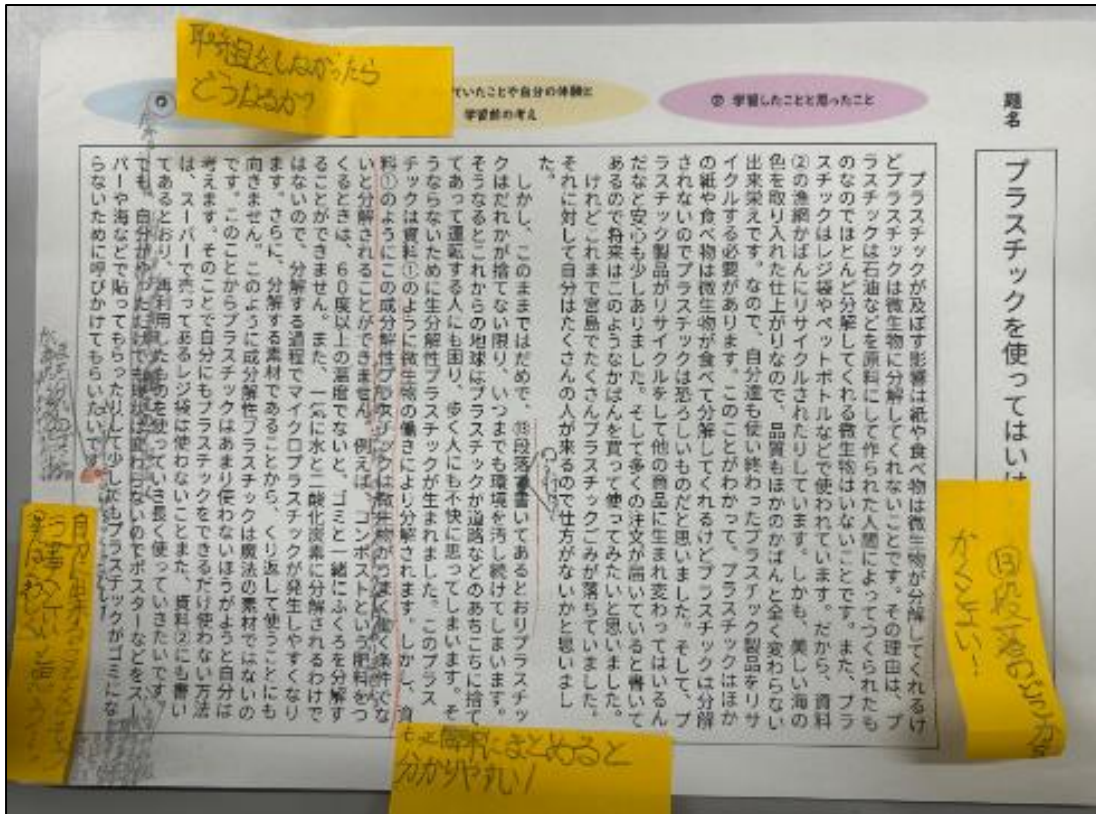 題名
プラスチックを使ってはいけ
② 学習したことと思ったこと
ていたことや自分の体験に
学習前の考え
取組をしなかったら
どうなるか?
プラスチックが及ぼす影響は紙や食べ物は微生物が分解してくれるけ
どプラスチックは微生物に分解してくれないことです。その理由は、プ
ラスチックは石油などを原料にして作られた人間によってつくられたも
のなのでほとんど分解してくれる微生物はいないことです。また、プラ
スチックはレジ袋やペットボトルなどで使われています。だから、資料
②の漁網かばんにリサイクルされたりしています。しかも、美しい海の
色を取り入れた仕上がりなので、品質もほかのかばんと全く変わらない
出来栄えです。なので、自分達も使い終わったプラスチック製品をリサ
イクルする必要があります。このことがわかって、プラスチックはほか
の紙や食べ物は微生物が食べて分解してくれるけどプラスチックは分解
されないのでプラスチックは恐ろしいものだと思いました。そして、プ
ラスチック製品がリサイクルをして他の商品に生まれ変わってはいるん
だなと安心も少しありました。そして多くの注文が届いていると書いて
あるので将来はこのようなかばんを買って使ってみたいと思いました。
けれどこれまで宮島でたくさんプラスチックごみが落ちていました。
それに対して自分はたくさんの人が来るので仕方がないかと思いまし
た。
しかし、このままではだめで、⑬段落で書いてあるとおりプラスチッ
クはだれかが捨てない限り、いつまでも環境を汚し続けてしまいます。
そうなるとこれからの地球はプラスチックが道路などのあちこちに捨て
てあって運転する人にも困り、歩く人にも不快に思ってしまいます。そ
うならないために生分解性プラスチックが生まれました。このプラス
チックは資料①のように微生物の働きにより分解されます。しかし、資
料①のようにこの成分解性プラスチックは微生物がうまく働く条件でな
いと分解されることができません。例えば、コンポストという肥料をつ
くるときは、60度以上の温度でないと、ゴミと一緒にふくろを分解す
ることができません。また、一気に水と二酸化炭素に分解されるわけで
はないので、分解する過程でマイクロプラスチックが発生しやすくなり
ます。さらに、分解する素材であることから、くり返して使うことにも
向きません。このように成分解性プラスチックは魔法の素材ではないの
です。このことからプラスチックはあまり使わないほうがようと自分は
考えます。そのことで自分にもプラスチックをできるだけ使わない方法
は、スーパーで売ってあるレジ袋は使わないことまた、資料②にも書い
てあるとおり、再利用したものを使っていき長く使っていきたいです。
でも、自分がやっただけでも地球は変わらないのでポスターなどをスー
パーや海などで貼ってもらったりして少しでもプラスチックがゴミにな
らないために呼びかけてもらいたいです。
⑬段落
かくとよい!
にまとめると
分かりやすい!